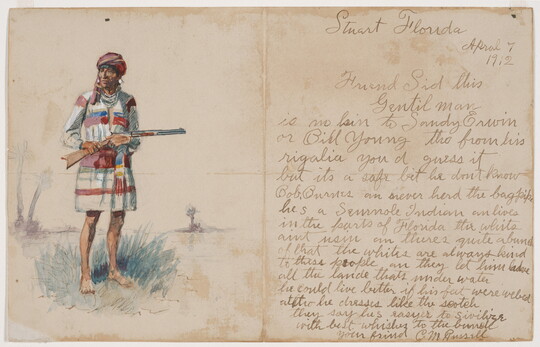 Stuart Florida
April 7
1912
Friend Sid this
Gentil man
is no kin to Sandy Erwin
or Bill Young tho from his
rigalia you d guess it
but its a safe bet he dont know
Bob Burnes an never herd the bagpipe
hes a Semnole Indian an lives
in the parts of Florida the white
man
of that the whites are always kind
to these people an they let him have
all the lande thats under water
he could live better if his feet were webed
altho he dresses like the scotch
they say hes easyer to sivilize
with best whishes to the bunch
your frind C M Russell